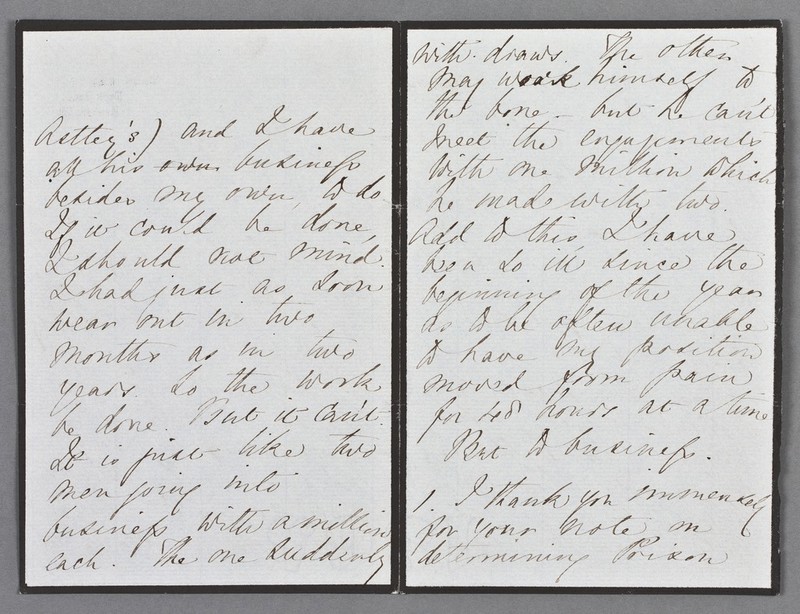 Astley's) and I have
all his own business
besides my own, to do
If it could be done,
I should not mind.
I had just as soon
wear out in two
months as in two
years. So the work
be done. But it can't.
It is just like two
men going into
business with a million
each. The one suddenly
with-draws. The other
may work himself to
the bone - but he can't
meet the engagements
with one million which
he made with two.
Add to this, I have
been so ill since the
beginning of the year
as to be often unable
to have my position
moved from pain
for 48 hours at a time
But to business.
1. I thank you immensely
for your note on
determining Prison